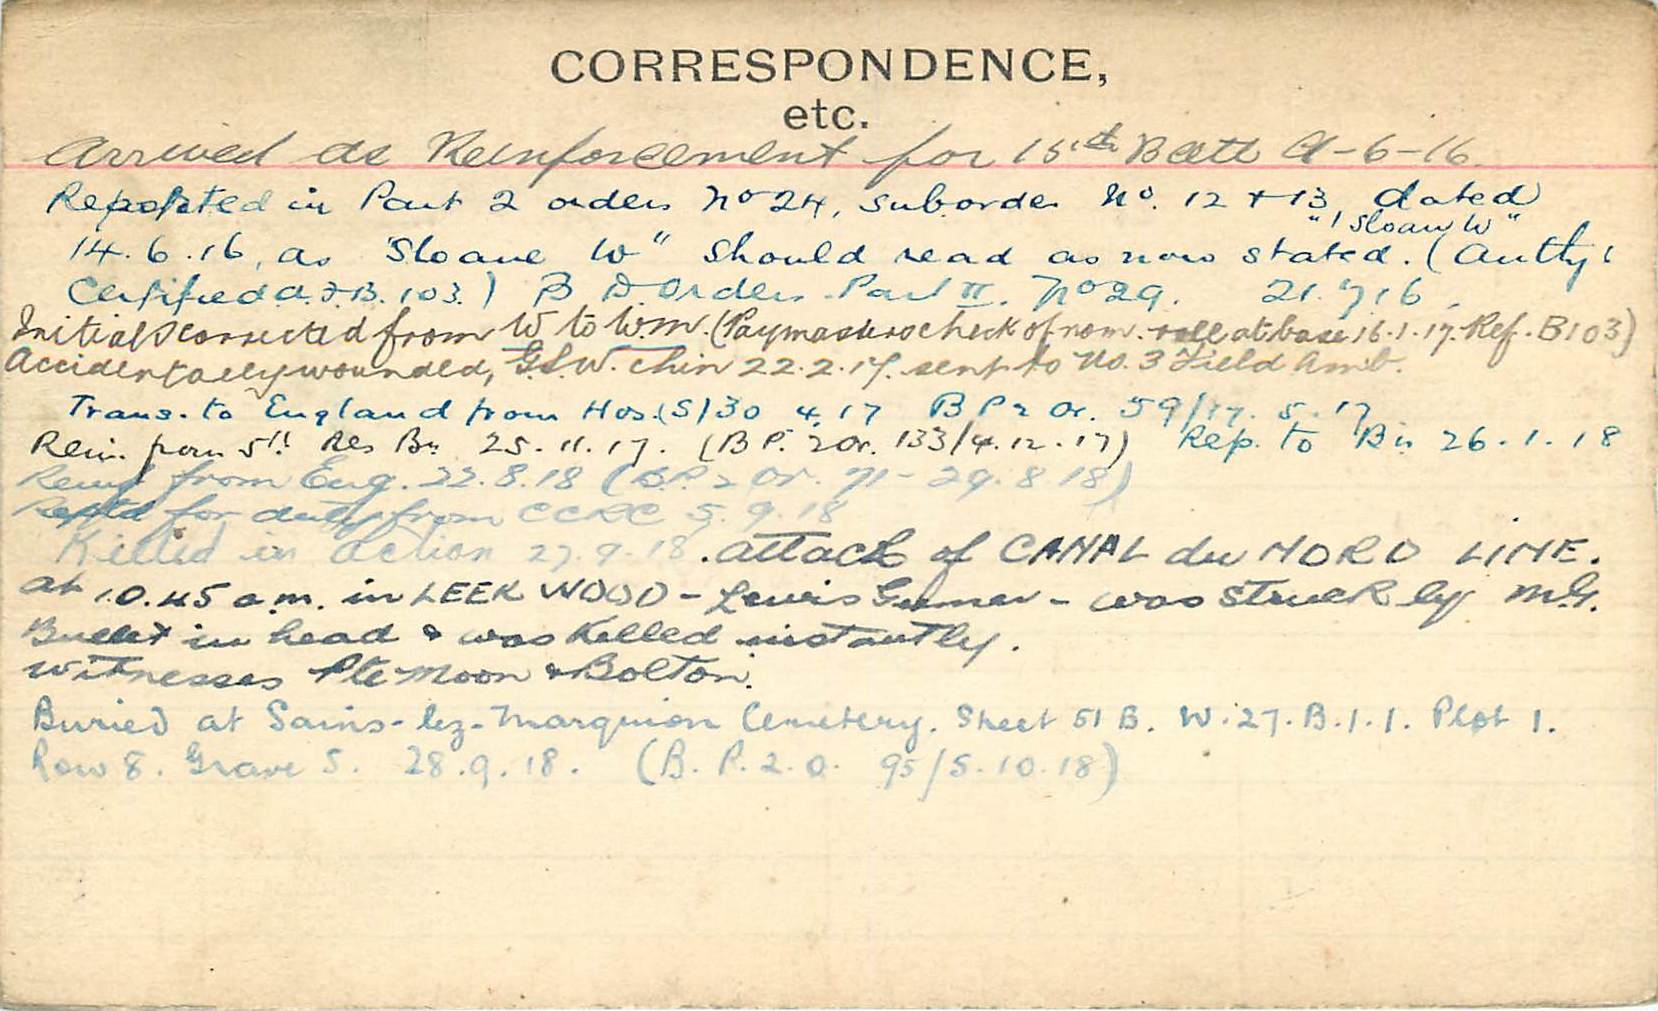 CORRESPONDENCE,
etc.
Arrived as Reinforcement for 15th Batt 9-6-16.
Reported in Part 2 orders No 24, suborder No. 12 + 13, dated
"Sloan W"
14.6.16, as "Sloane W" should read as now stated. (Authy:
Certified A.F.B. 103.) B D Orders Part II. No 29. 21.7.16.
Initials corrected from W to Wm. (Paymasters check of nom. roll at base 16.1.17. Ref. B103)
Accidentally wounded, G.S.W. chin 22.2.17. sent to No. 3 Field Amb.
Trans. to England from Hos. (S) 30 4.17 B P 2 Or. 59/17. 5. 17
Rein. from 5th Res Bn 25.11.17. (B P. 2 Or. 133/4.12.17) Rep. to Bn 26.1.18
from Eng. 22.8.18 (B.P. 2 Or. 71-29.8.18)
Reptd for duty from CCRC 5.9.18
Killed in action 27.9.18. attack of CANAL du NORD LINE.
at 10.45 a.m. in LEEK WOOD - Lewis Gunner - was struck by M.G.
Bullet in head & was killed instantly.
Witnesses Pte Moon & Bolton.
Buried at Sains-lez-Marquion Cemetery. Sheet 51 B. W.27.B.1.1. Plot 1.
Row 8. Grave 5. 28.9.18. (B. P. 2. O. 95/5.10.18)